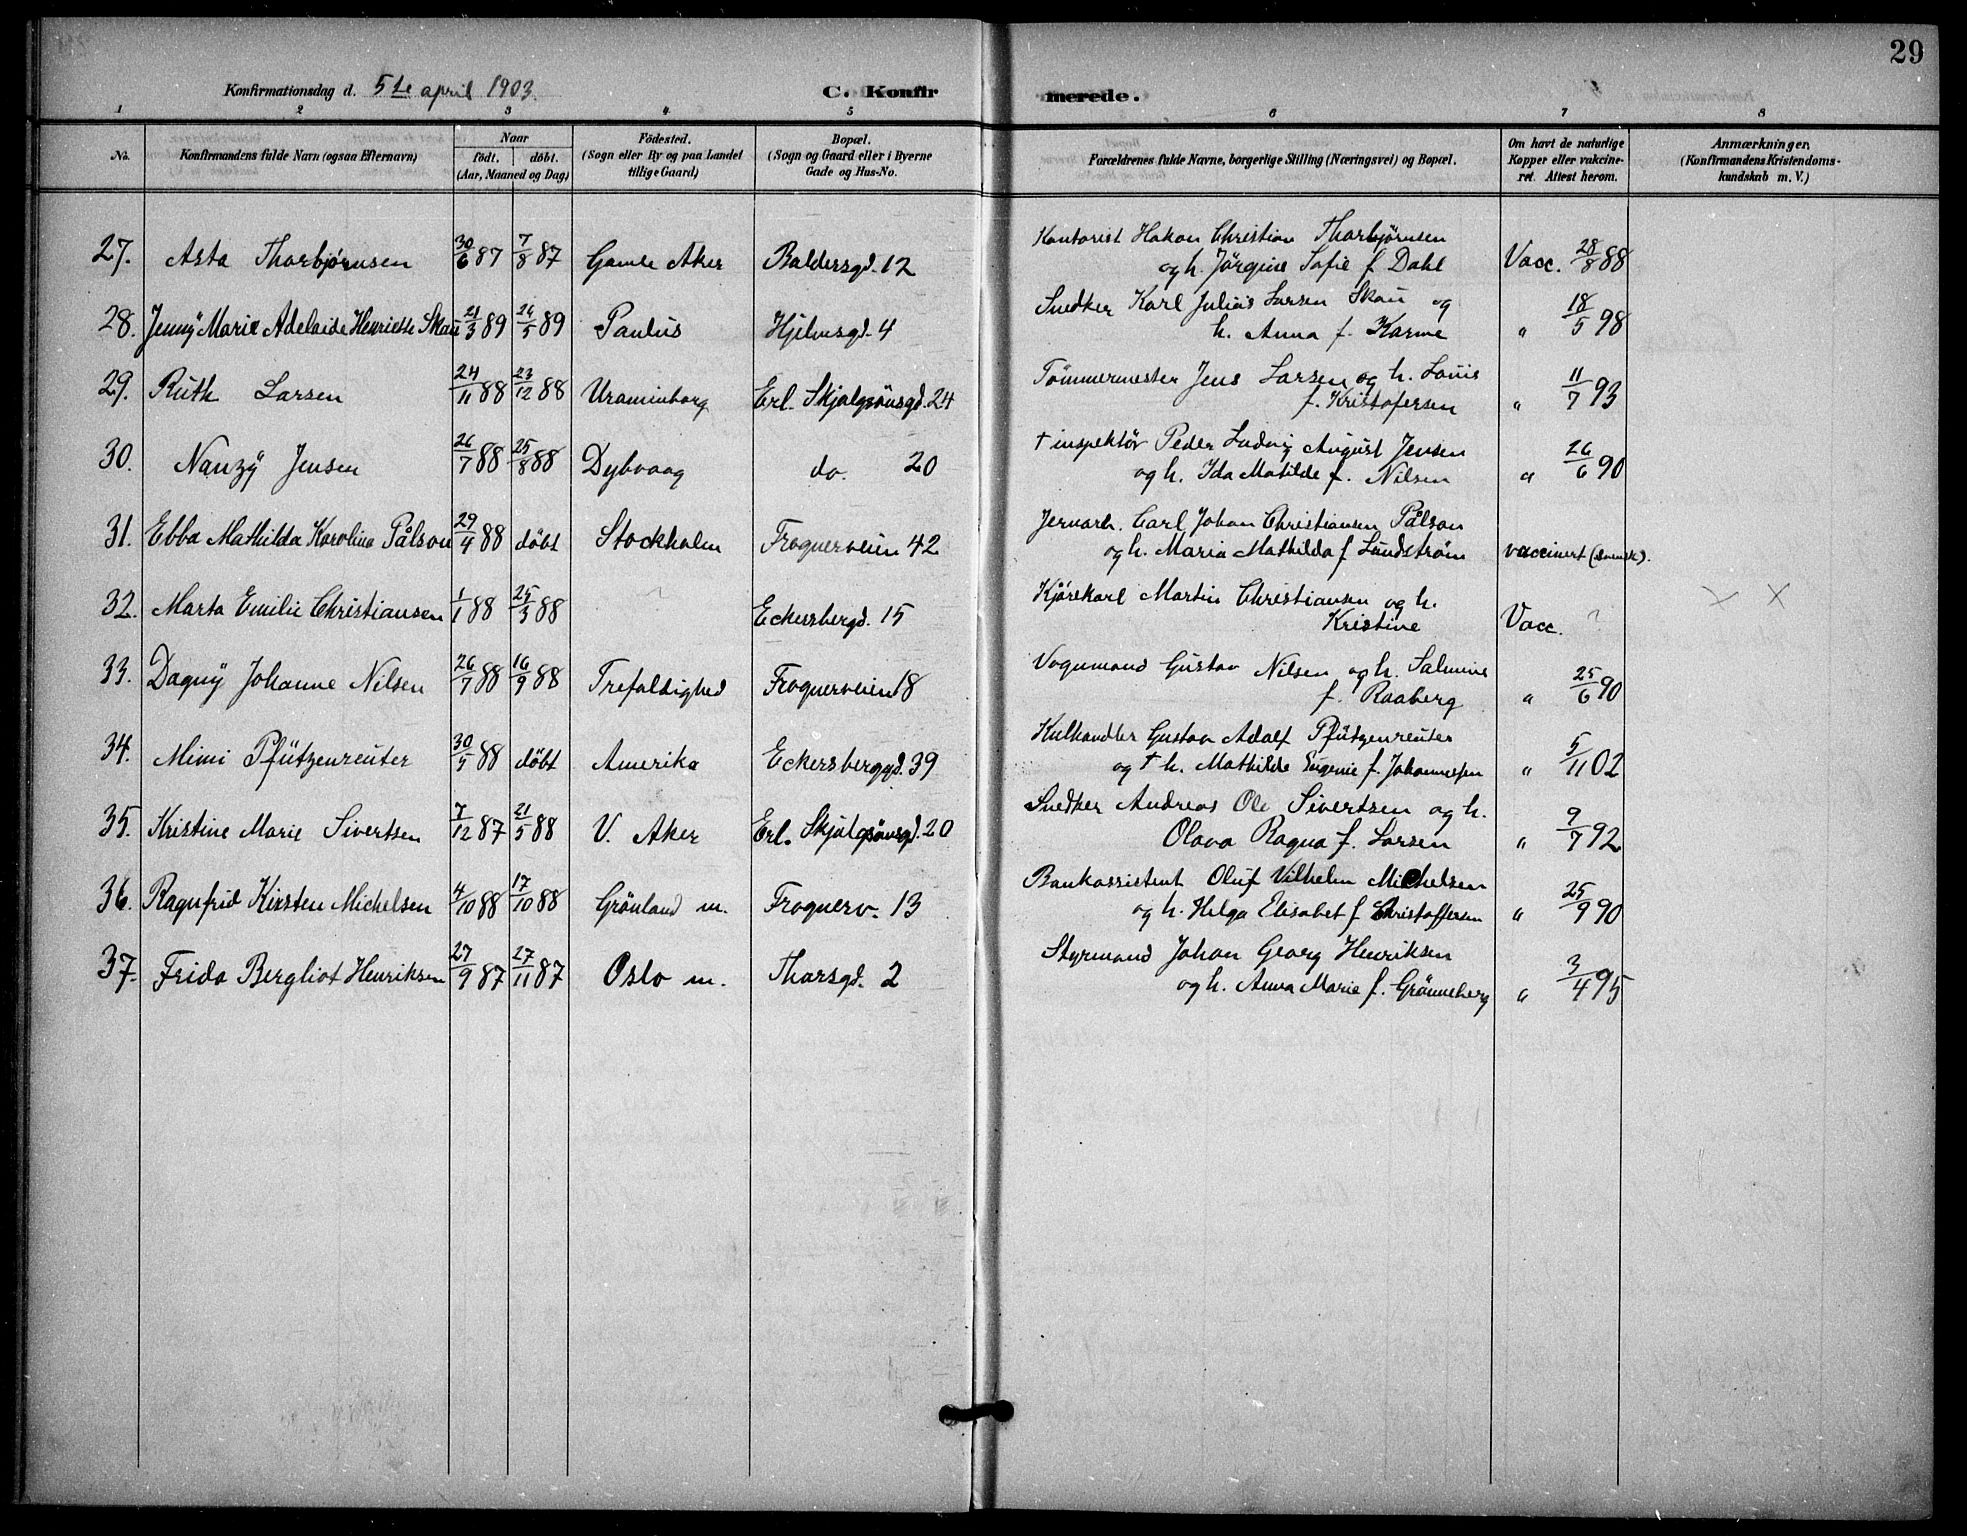 29
Konfirmationsdag d. 5te april 1903. C. Konfirmerede.
1 2 3 4 5 6 7 8
No. Konfirmandens fulde Navn (ogsaa Efternavn) Naar født. døbt. (Aar, Maaned og Dag) Födested. (Sogn eller By og paa Landet tillige Gaard) Bopæl. (Sogn og Gaard eller i Byerne Gade og Hus-No. Forældrenes fulde Navne, borgerlige Stilling (Næringsvei) og Bopæl. Om havt de naturlige Kopper eller vakcineret. Attest herom. Anmærkninger. (Konfirmandens Kristendomskundskab m. V.)
27. Asta Thorbjørnsen 30/6 87 7/8 87 Gamle Aker Baldersgd. 12 Kontorist Hakon Christian Thorbjørnsen Vacc. 28/8 88
og h. Jørgine Sofie f. Dahl
28. Jenny Marie Adelaide Henriette Skau 21/3 89 26/5 89 Paulus Hjelmsgd. 4 Snedker Karl Julius Larsen Skau og " 18/5 98
h. Anna f. Karme
29. Ruth Larsen 24/11 88 23/12 88 Uranienborg Erl. Skjalgsønsgd. 24 Tømmermester Jens Larsen og h. Louis " 11/7 93
f. Kristofersen
30. Nanzy Jensen 26/7 88 25/8 88 Dybvaag do. 20 † inspektör Peder Ludvig August Jensen " 26/6 90
og h. Ida Matilde f. Nilsen
31. Ebba Mathilda Karolina Pålson 29/4 88 döbt Stockholm Frognerveien 42 Jernarb. Carl Johan Christiansen Pålson vaccinert (svensk).
og h. Maria Mathilda f Lundström
32. Marta Emilie Christiansen 1/1 88 25/3 88 ? Eckersbergd. 15 Kjörekarl Martin Christiansen og h. Vacc. ? x X
Kristine
33. Dagny Johanne Nilsen 26/7 88 16/9 88 Trefoldighed Frognerveien 18 Vognmand Gustav Nilsen og h. Salmine " 25/6 90
f. Raaberg
34. Mimi Pfützenreuter 30/5 88 döbt Amerika Eckersberggd. 39 Kulhandler Gustav Adolf Pfützenreuter " 5/11 02
og † h. Mathilde Eugenie f. Johannesen
35. Kristine Marie Sivertsen 7/12 87 21/5 88 V. Aker Erl. Skjalgsønsgd. 20 Snedker Andreas Ole Sivertsen og h. " 9/7 92
Olava Ragna f. Larsen
36. Ragnfrid Kirsten Michelsen 4/10 88 17/10 88 Grönland m. Frognerv. 13 Bankassistent Oluf Vilhelm Michelsen " 25/9 90
og h. Helga Elisabet f. Christoffersen
37. Frida Bergliot Henriksen 27/9 87 27/11 87 Oslo m. Thorsgd. 2 Styrmand Johan Georg Henriksen " 3/4 95
og h. Anna Marie f. Grönneberg